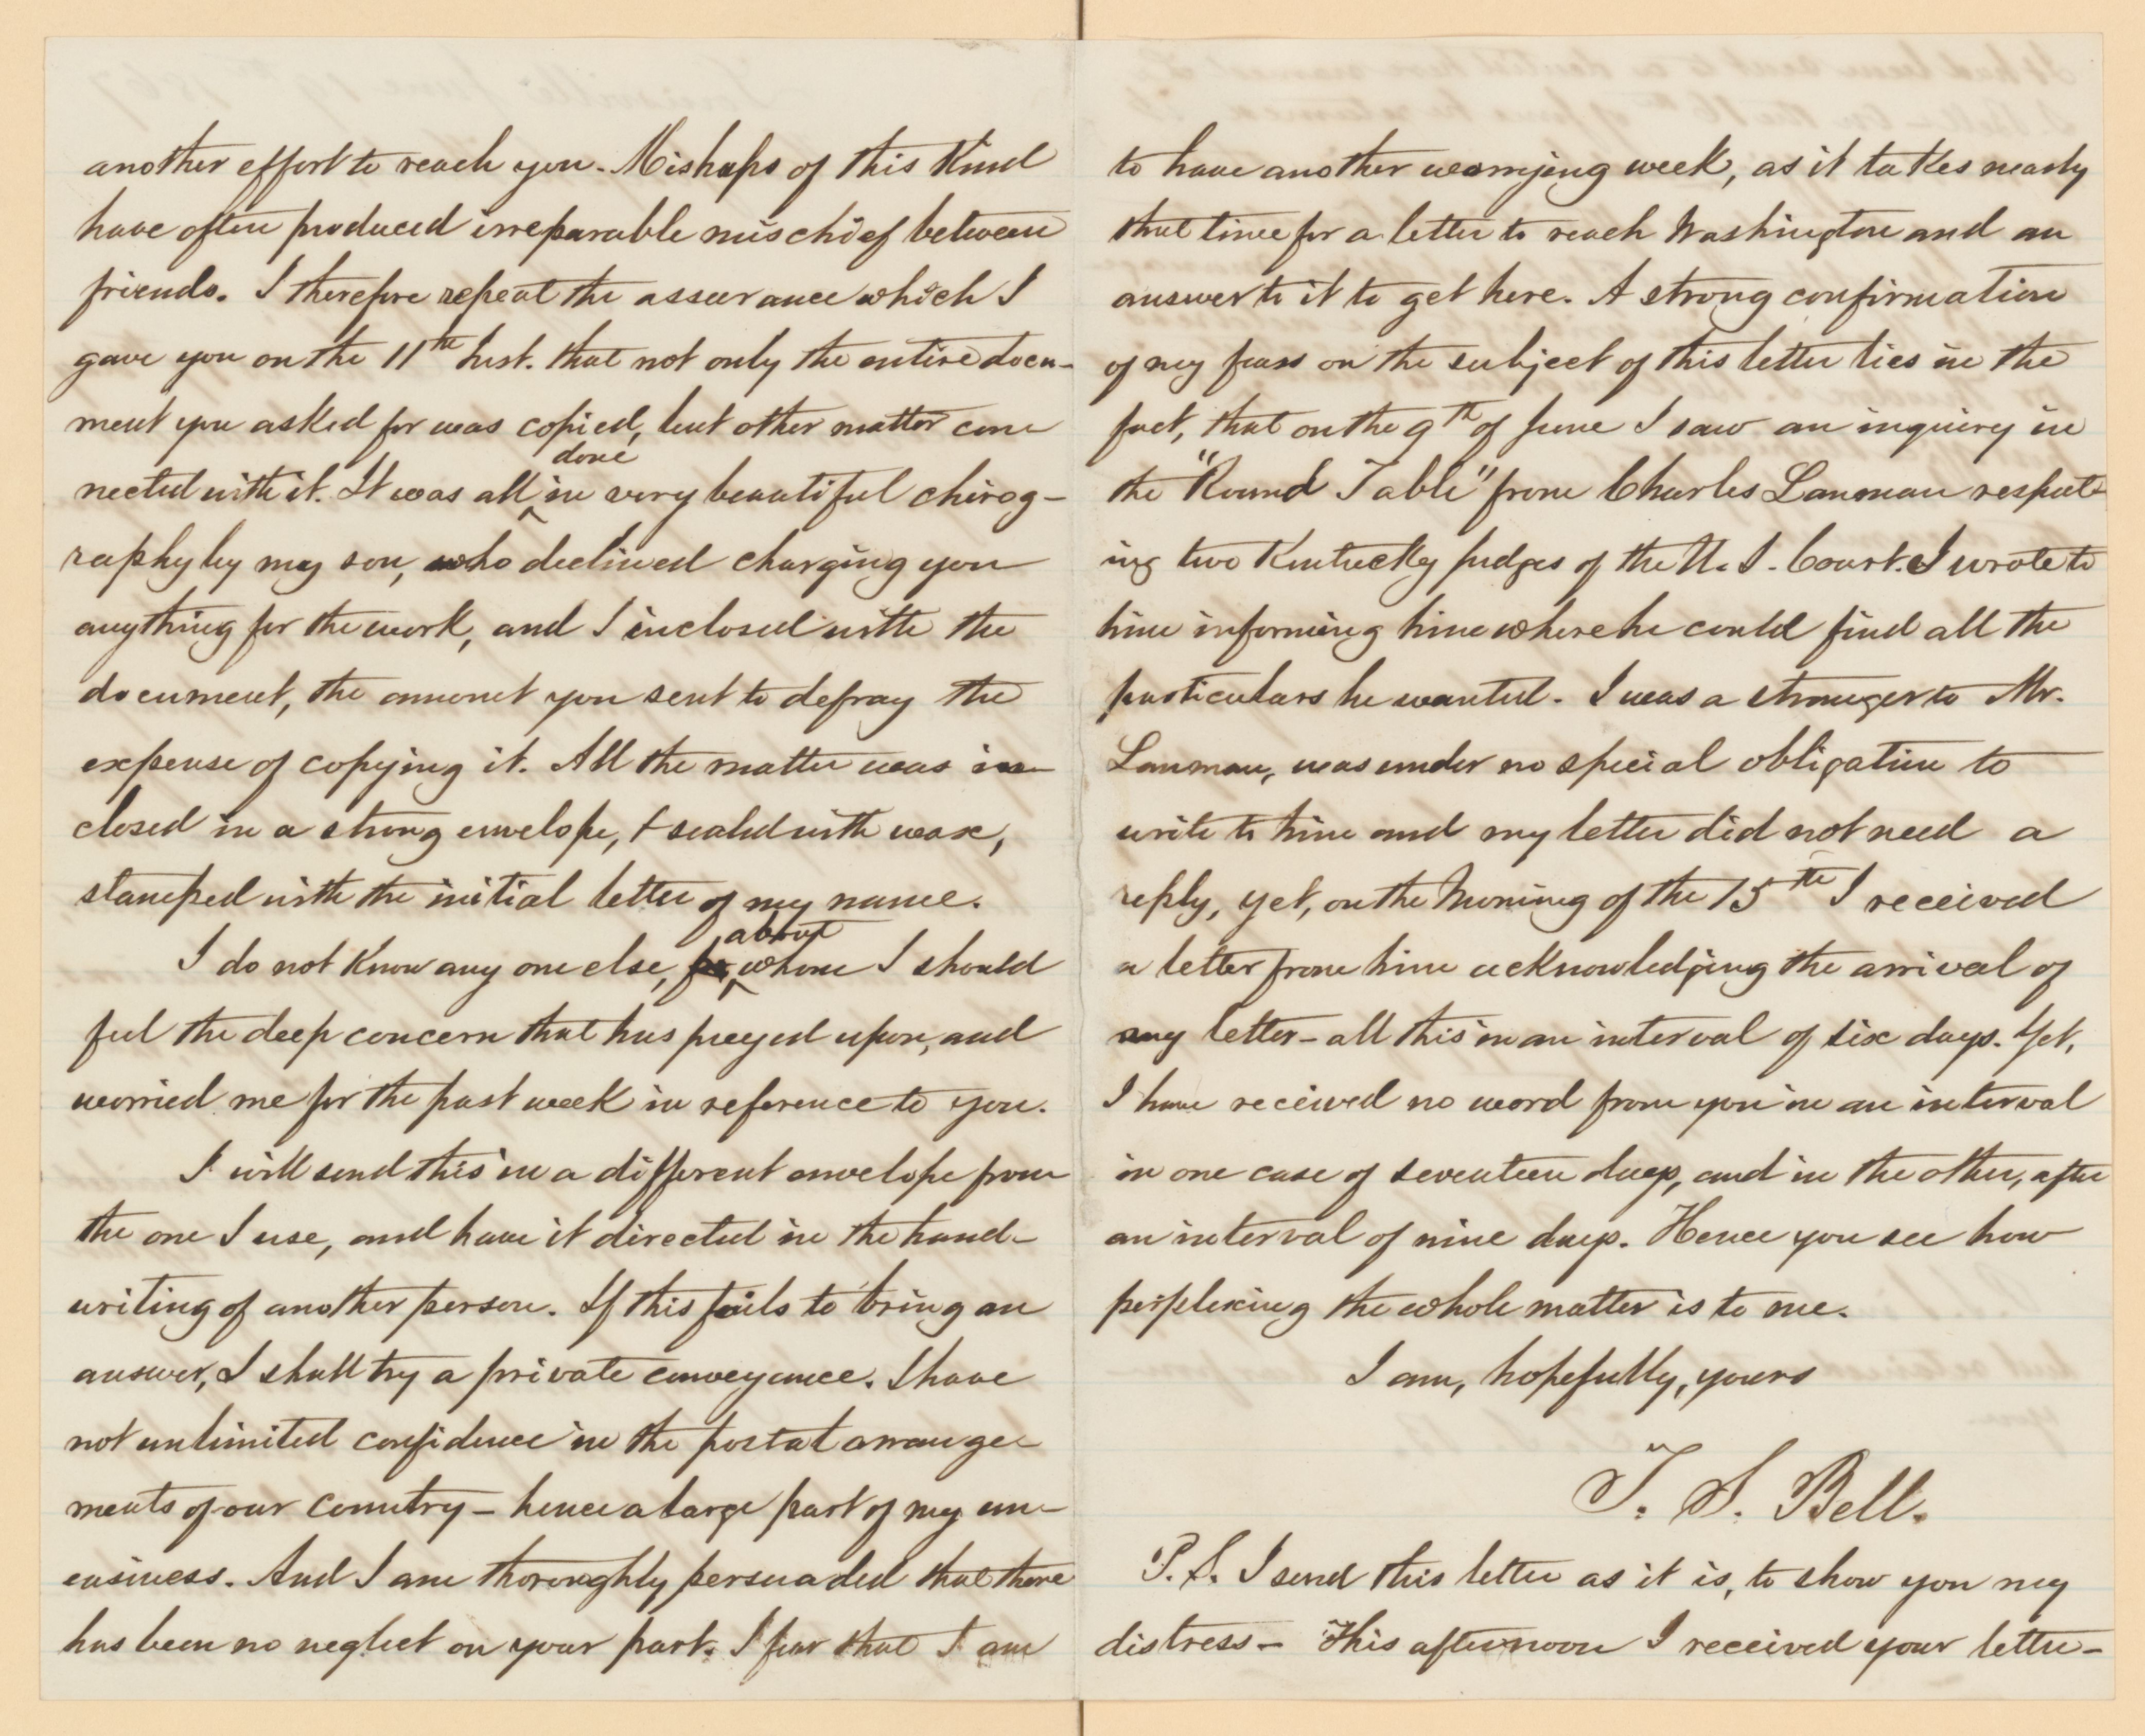 another effort to reach you. Mishaps of this kind
have often produced irreparable mischief between
friends. I therefore repeat the assurance which I
gave you on the 11th Inst. that not only the entire docu-
ment you asked for was copied, but other matter con
nected with it. It was all done in very beautiful chirog-
raphy by my son, who declined charging you
anything for the work, and I inclosed with the
document, the amount you sent to defray the
expense of copying it. All the matter was in-
closed in a strong envelope, & sealed with wax,
stamped with the initial letter of my name.
I do not know any one else, about whom I should
feel the deep concern that has preyed upon, and
worried me for the past week in reference to you.
I will send this in a different envelope from
the one I use, and have it directed in the hand-
writing of another person. If this fails to bring an
answer, I shall try a private conveyance. I have
not unlimited confidence in the postal arrange-
ments of our country – hence a large part of my un-
easiness. And I am thoroughly persuaded that there
has been no neglect on your part. I fear that I am
to have another worrying week, as it takes nearly
that time for a letter to reach Washington and an
answer to it to get here. A strong confirmation
of my fears on the subject of this letter lies in the
fact, that on the 9th of June I saw an inquiry in
the "Round Table" from Charles Lanman respect-
ing two Kentucky Judges of the U. S. Court. I wrote to
him informing him where he could find all the
particulars he wanted. I was a stranger to Mr.
Lanman, was under no special obligation to
write to him and my letter did not need a
reply, yet, on the Morning of the 15th I received
a letter from him acknowledging the arrival of
my letter – all this in an interval of six days. Yet,
I have received no word from you in an interval
in one case of seventeen days, and in the other, after
an interval of nine days. Hence you see how
perplexing the whole matter is to me.
I am, hopefully, yours
T. S. Bell.
P.S. I send this letter as it is, to show you my
distress – This afternoon I received your letter –